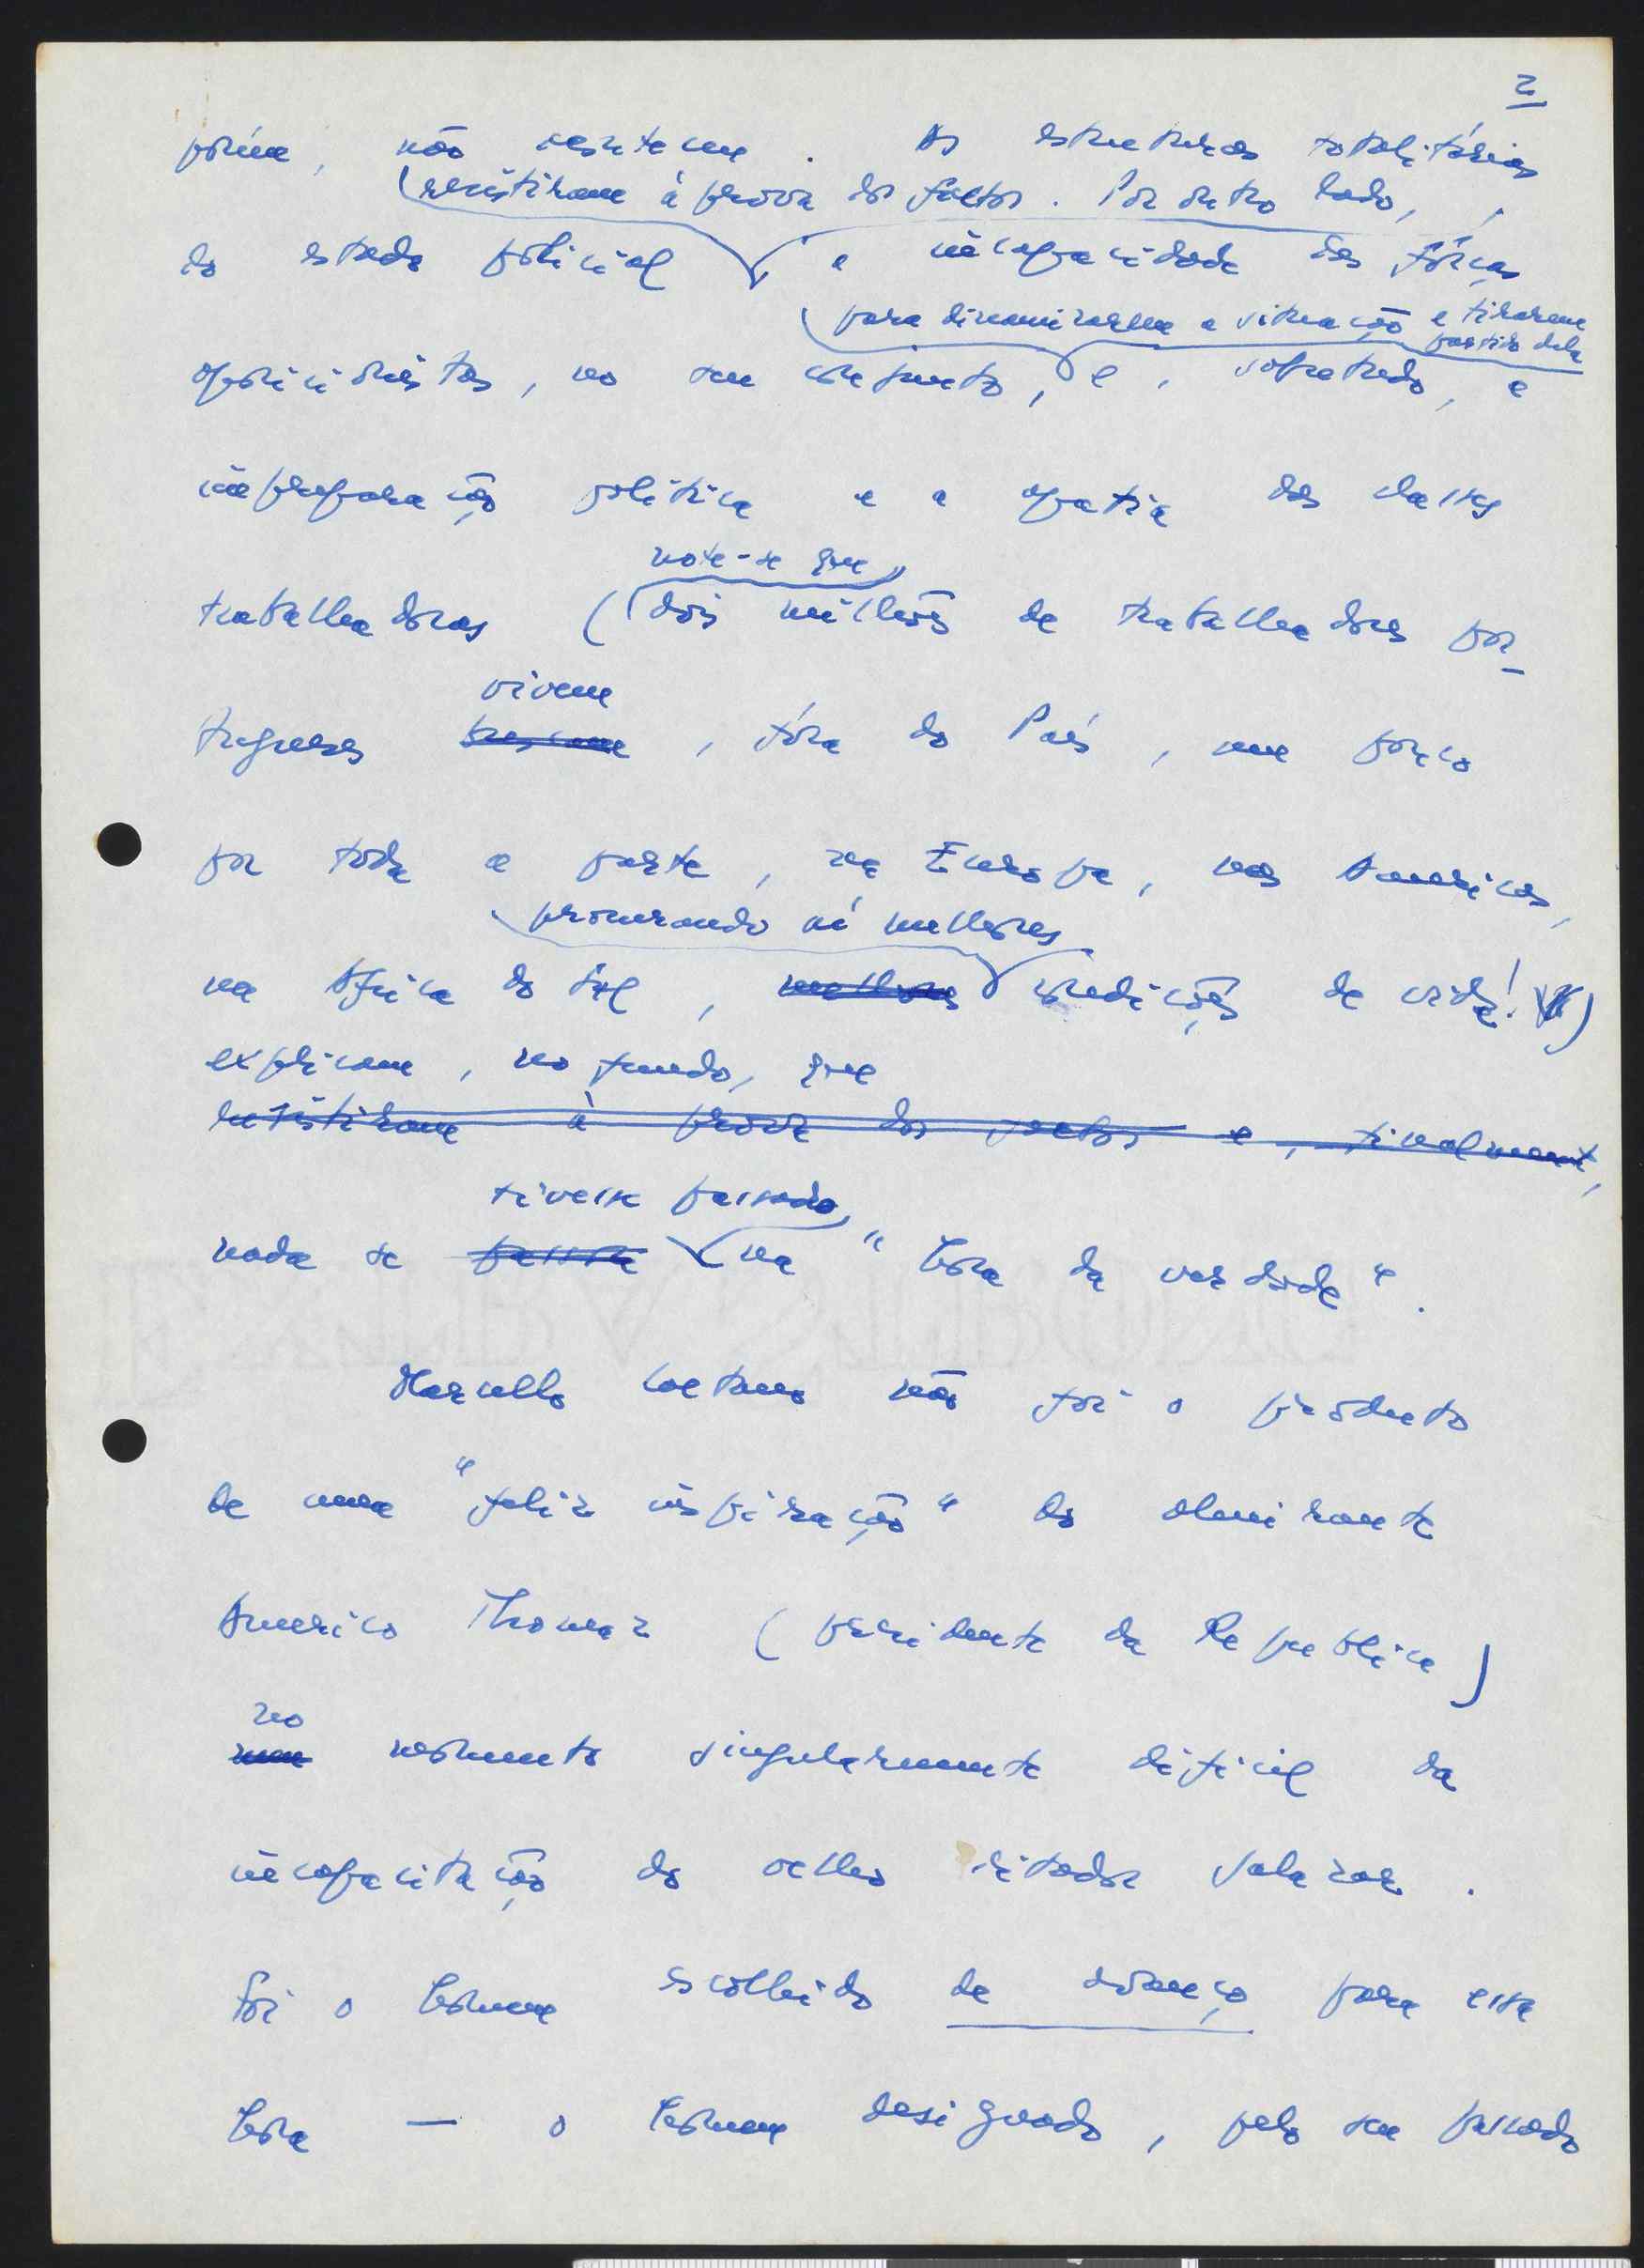 2
porém, não aconteceu. As estruturas totalitárias
resistiram à prova dos factos. Por outro lado,
do estado policial a incapacidade das fôrças
para dinamizarem a situação e tirarem
partido dela
oposicionistas, no seu conjunto, e, sobretudo, a
impreparação política e a apatia das classes
note-se que
trabalhadoras (dois milhões de trabalhadores por-
vivem
tugueses, fóra do País, um pouco
por toda a parte, na Europa, nas Americas,
procurando aí melhores
na Africa do Sul, melhores condições de vida!)
explicam, no fundo, que
resistiram à prova dos factos e, finalmente,
tivesse passado
nada se passou na "hora da verdade".
Marcello Caetano não foi o producto
de uma "feliz inspiração" do almirante
Americo Thomaz (presidente da Republica)
no
num momento singularmente dificil da
incapacitação do velho ditador Salazar.
Foi o homem escolhido de avanço para essa
hora — o homem designado, pelo seu passado